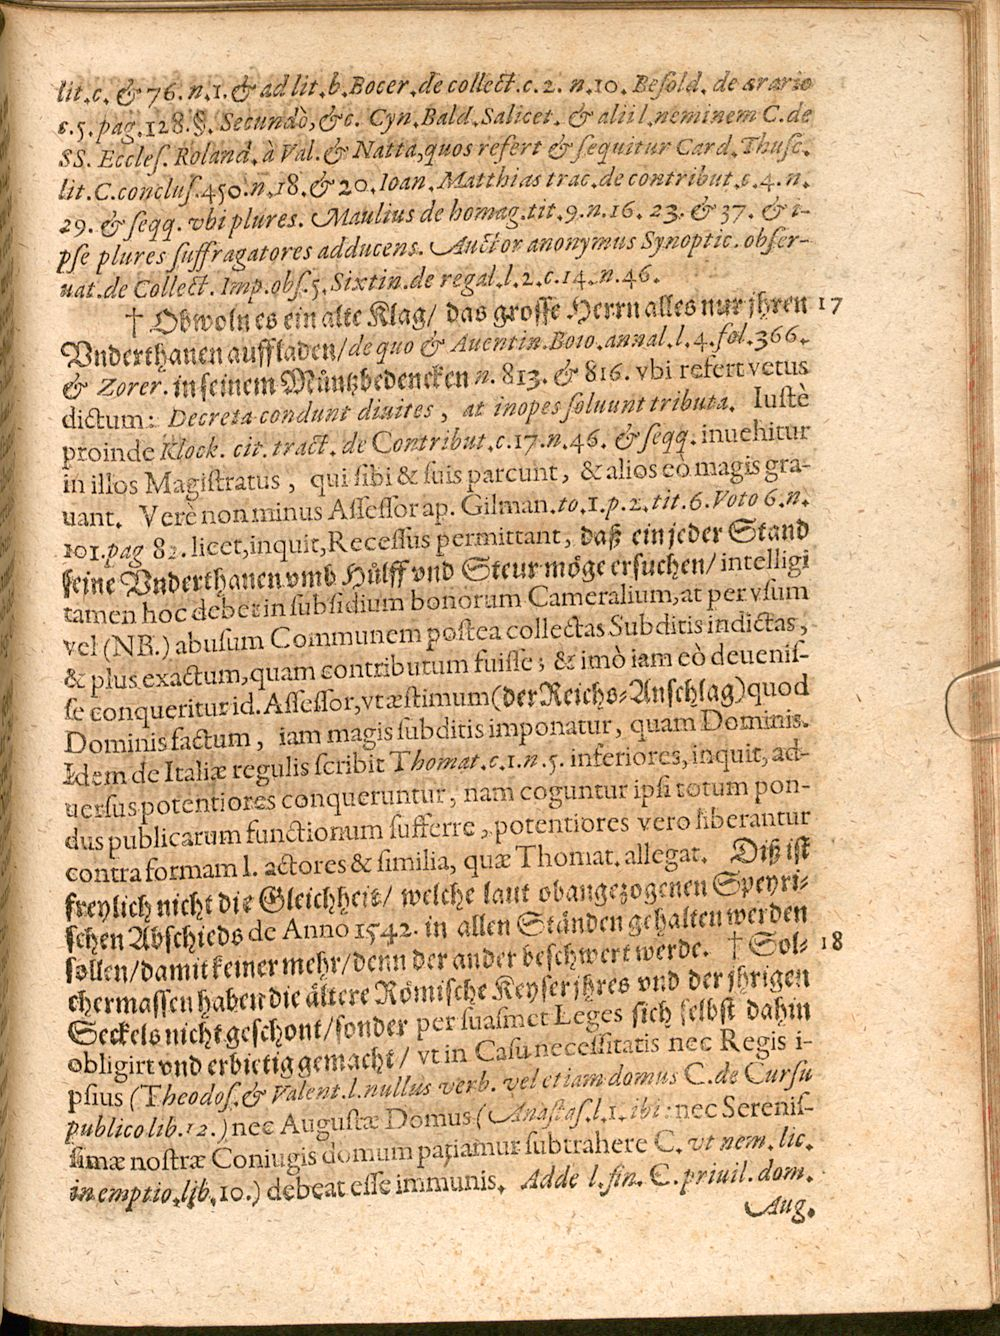 lit.c. & 76. n.1. & ad lit.b. Bocer. de collect. c. 2. n.10. Besold. de ærario
c.5. pag.128.§. Secundò, &c. Cyn. Bald. Salicet. & alii l. neminem C. de
SS. Eccles. Roland. à Val. & Natta, quos refert & sequitur Card. Thusc.
lit. C. conclus. 450. n. 18. & 20. Ioan. Matthias trac. de contribut. c. 4. n.
29. & seqq. vbi plures. Maulius de homag. tit. 9. n. 16. 23. & 37. & i-
pse plures suffragatores adducens. Auctor anonymus Synoptic. obser-
uat. de Collect. Imp. obs. 5. Sixtin. de regal. l. 2. c. 14. n. 46.
† Obwoln es ein alte Klag/ das grosse Herrn alles nur jhren 17
Vnderthanen auffladen/ de quo & Auentin. Boio. annal. l. 4. fol. 366.
& Zorer. in seinem Müntzbedencken n. 813. & 816. vbi refert vetus
dictum: Decreta condunt diuites, at inopes soluunt tributa. Iustè
proinde Klock. cit. tract. de Contribut. c. 17. n. 46. & seqq. inuehitur
in illos Magistratus, qui sibi & suis parcunt, & alios eò magis gra-
uant. Verè non minus Assessor ap. Gilman. to. 1. p. 2. tit. 6. Voto 6. n.
101. pag 82. licet, inquit, Recessus permittant, daß ein jeder Stand
seine Vnderthanen vmb Hülff vnd Steur möge ersuchen/ intelligi
tamen hoc debet in subsidium bonorum Cameralium, at per vsum
vel (NB.) abusum Communem postea collectas Subditis indictas,
& plus exactum, quam contributum fuisse; & imò iam eò deuenis-
se conqueritur id. Assessor, vt æstimum (der Reichs-Anschlag) quod
Dominis factum, iam magis subditis imponatur, quam Dominis.
Idem de Italiæ regulis scribit Thomat. c. 1. n. 5. inferiores, inquit, ad-
uersus potentiores conqueruntur, nam coguntur ipsi totum pon-
dus publicarum functionum sufferre, potentiores vero liberantur
contra formam l. actores & similia, quæ Thomat. allegat. Diß ist
freylich nicht die Gleichheit/ welche laut obangezogenen Speyri-
schen Abschieds de Anno 1542. in allen Ständen gehalten werden
sollen/ damit keiner mehr/ denn der ander beschwert werde. † Sol- 18
chermassen haben die ältere Römische Keyser jhres vnd der jhrigen
Seckels nicht geschont/ sonder per suasmet Leges sich selbst dahin
obligirt vnd erbietig gemacht/ vt in Casu necessitatis nec Regis i-
psius (Theodos. & Valent. l. nullus verb. vel etiam domus C. de Cursu
publico lib. 12.) nec Augustæ Domus (Anastas. l. 1. ibi: nec Serenis-
simæ nostræ Coniugis domum patiamur subtrahere C. vt nem. lic.
in emptio. lib. 10.) debeat esse immunis. Adde l. fin. C. priuil. dom.
Aug.